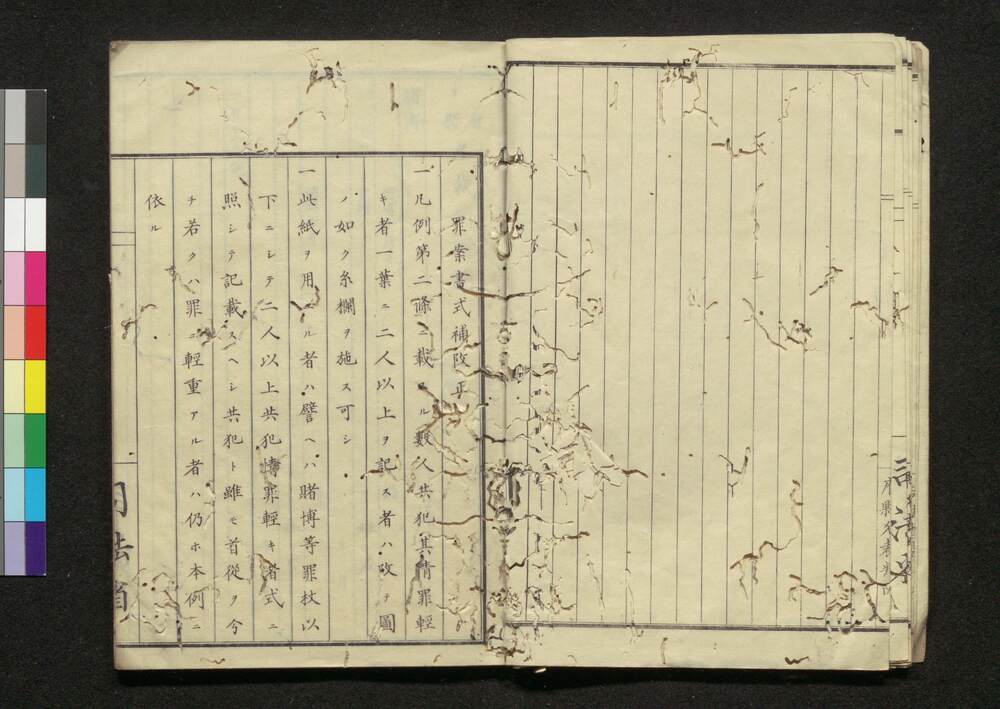 罪案書式補改正
一凡例第二條ニ載スル數人共犯其情罪輕
キ者一葉ニ二人以上ヲ記ス者ハ改テ圖
ノ如ク糸欄ヲ施ス可シ
一此紙ヲ用ユル者ハ譬ヘハ賭博等罪杖以
下ニシテ二人以上共犯情罪輕キ者式ニ
照シテ記載スヘシ共犯ト雖モ首從ヲ分
チ若クハ罪ニ輕重アル者ハ仍ホ本例ニ
依ル
司法省